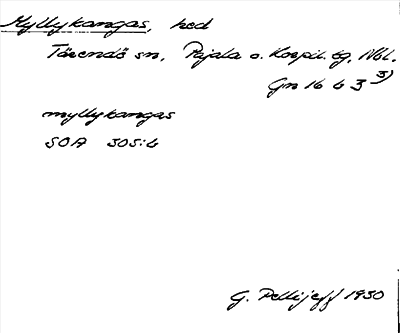 Myllykangas, hed
Tärendö sn, Pajala o. Korpil. tg, Nbl.
Gn 16 b 3 3)
myllykangas
SOA 305:6
G. Pellijeff 1930